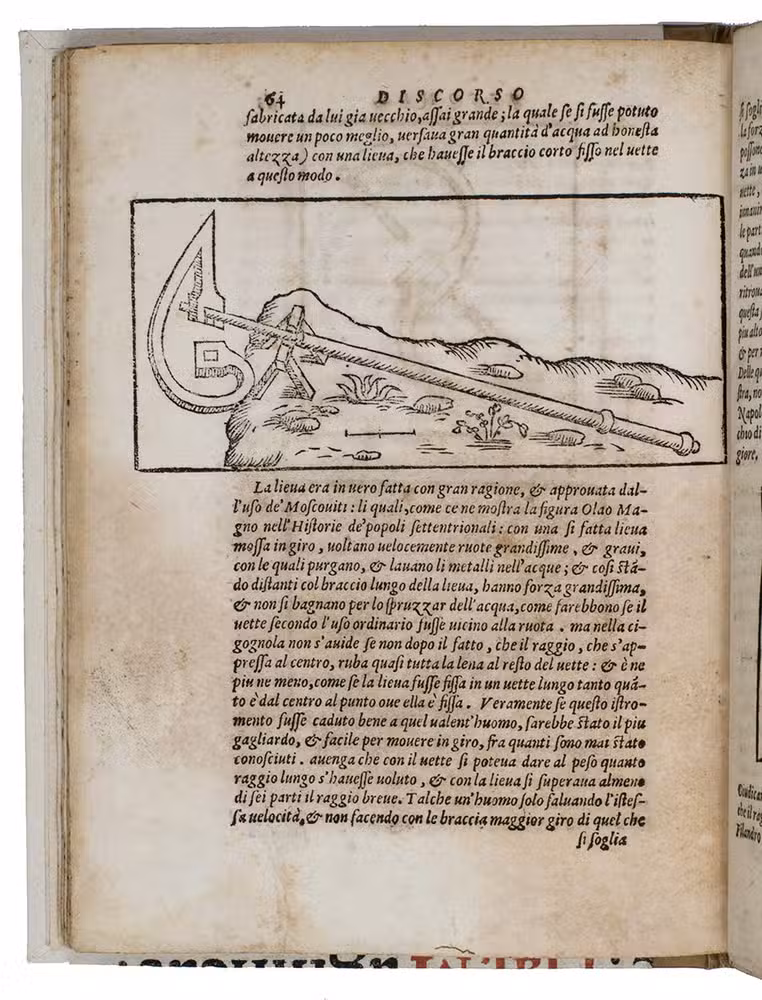 64 DISCORSO
fabricata da lui gia uecchio, assai grande ; la quale se si fusse potuto
mouere un poco meglio, uersaua gran quantità d'acqua ad honesta
altezza) con una lieua, che hauesse il braccio corto fisso nel uette
a questo modo .
La lieua era in uero fatta con gran ragione, & approuata dal-
l'uso de' Moscouiti : li quali, come ce ne mostra la figura Olao Ma-
gno nell'Historie de' popoli settentrionali : con una si fatta lieua
mossa in giro , uoltano uelocemente ruote grandissime , & graui,
con le quali purgano, & lauano li metalli nell'acque ; & cosi stã-
do distanti col braccio lungo della lieua, hanno forza grandissima,
& non si bagnano per lo spruzzar dell'acqua, come farebbono se il
uette secondo l'uso ordinario fusse uicino alla ruota . ma nella ci-
gognola non s'auide se non dopo il fatto , che il raggio , che s'ap-
pressa al centro, ruba quasi tutta la lena al resto del uette : & è ne
piu ne meno, come se la lieua fusse fissa in un uette lungo tanto quã-
to è dal centro al punto oue ella è fissa . Veramente se questo istro-
mento fusse caduto bene a quel ualent'huomo, sarebbe stato il piu
gagliardo, & facile per mouere in giro, fra quanti sono mai stato
conosciuti . auenga che con il uette si poteua dare al peso quanto
raggio lungo s'hauesse uoluto , & con la lieua si superaua almeno
di sei parti il raggio breue. Talche un'huomo solo saluando l'istes-
sa uelocità, & non facendo con le braccia maggior giro di quel che
si soglia